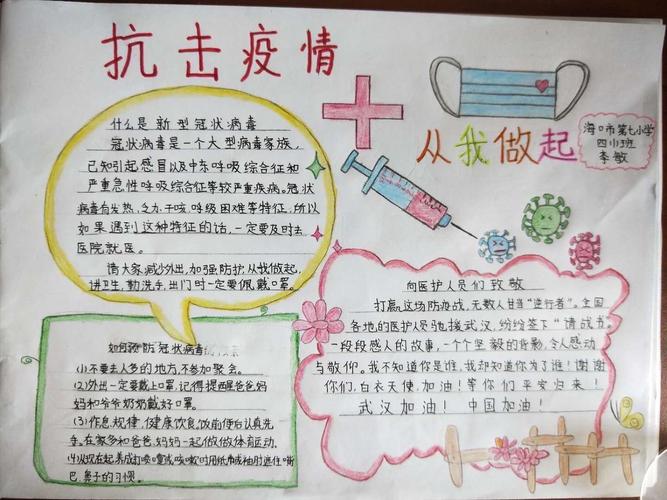 抗击疫情
从我做起
海口市第七小学
四(1)班
李敏
什么是新型冠状病毒
冠状病毒是一个大型病毒家族,
已知引起感冒以及中东呼吸综合征和
严重急性呼吸综合征等较严重疾病。冠状
病毒有发热、乏力、干咳、呼吸困难等特征,所以
如果遇到这种特征的话,一定要及时去
医院就医。
请大家减少外出,加强防护,从我做起,
讲卫生,勤洗手,出门时一定要佩戴口罩。
如何预防冠状病毒
(1)不要去人多的地方,不参加聚会。
(2)外出一定要戴上口罩,记得提醒爸爸妈
妈和爷爷奶奶戴好口罩。
(3)作息规律,健康饮食,饭前便后认真洗
手。在家多和爸爸、妈妈一起做做体育运动。
(4)从现在起养成打喷嚏或咳嗽时用纸巾或袖肘遮住嘴
巴、鼻子的习惯。
向医护人员们致敬
打赢这场防疫战,无数人甘当“逆行者”。全国
各地的医护人员驰援武汉,纷纷签下“请战书”。
一段段感人的故事,一个个坚毅的背影,令人感动
与敬仰。我不知道你是谁,我却知道你为了谁!谢谢
你们,白衣天使,加油!等你们平安归来!
武汉加油!中国加油!